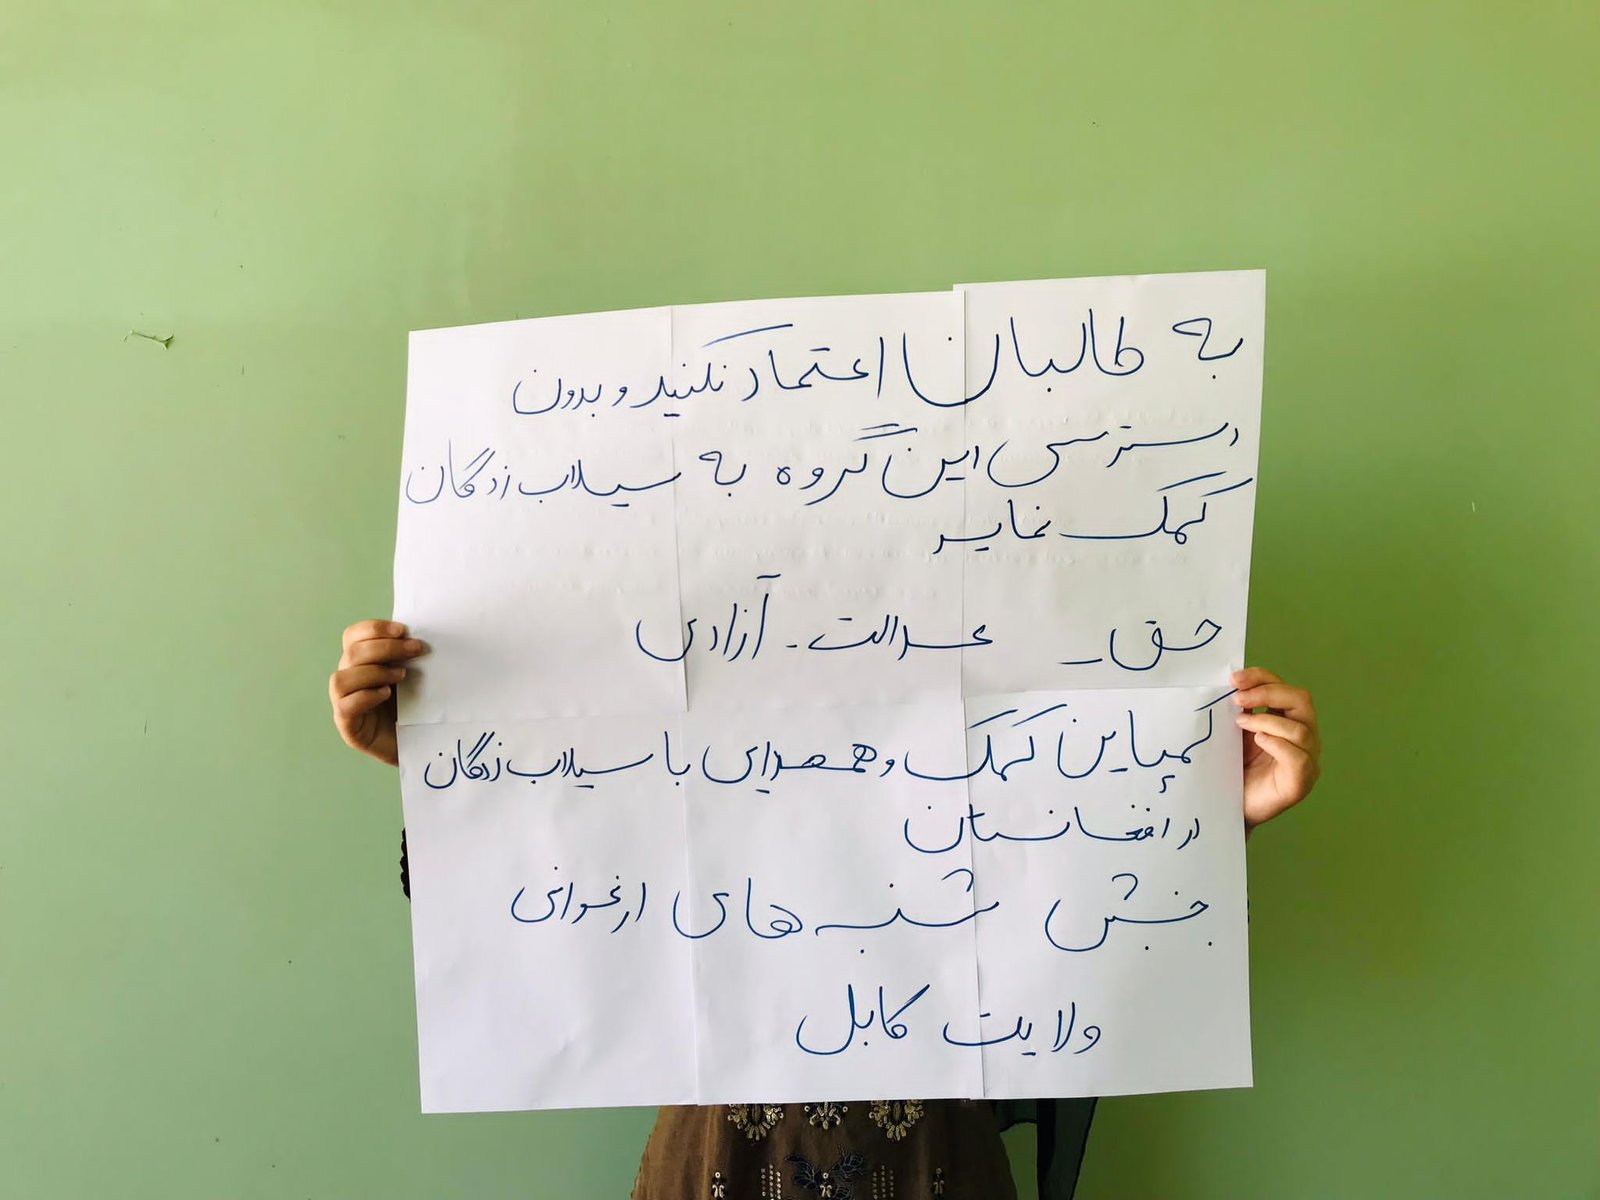 به طالبان اعتماد نکنید و بدون
دسترسی این گروه به سیلاب زدگان
کمک نماید
حق - عدالت - آزادی
کمپاین کمک و همصدایی با سیلاب زدگان
در افغانستان
جنبش شنبه های ارغوانی
ولایت کابل